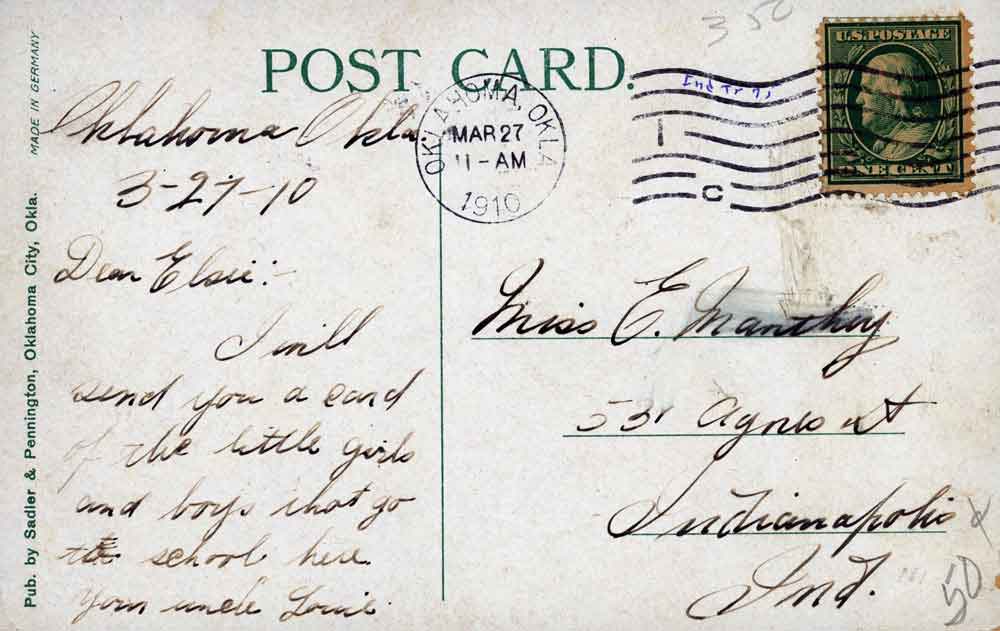 POST CARD.
MADE IN GERMANY
Pub. by Sadler & Pennington, Oklahoma City, Okla.
3 50
U.S. POSTAGE
ONE CENT
OKLAHOMA, OKLA
MAR 27
11-AM
1910
1
C
Oklahoma Okla.
3-27-10
Dear Elsie:-
I will
send you a card
of the little girls
and boys that go
to school here
Your uncle Louie.
Miss E. Manthey
531 Agnes St
Indianapolis
Ind.
50